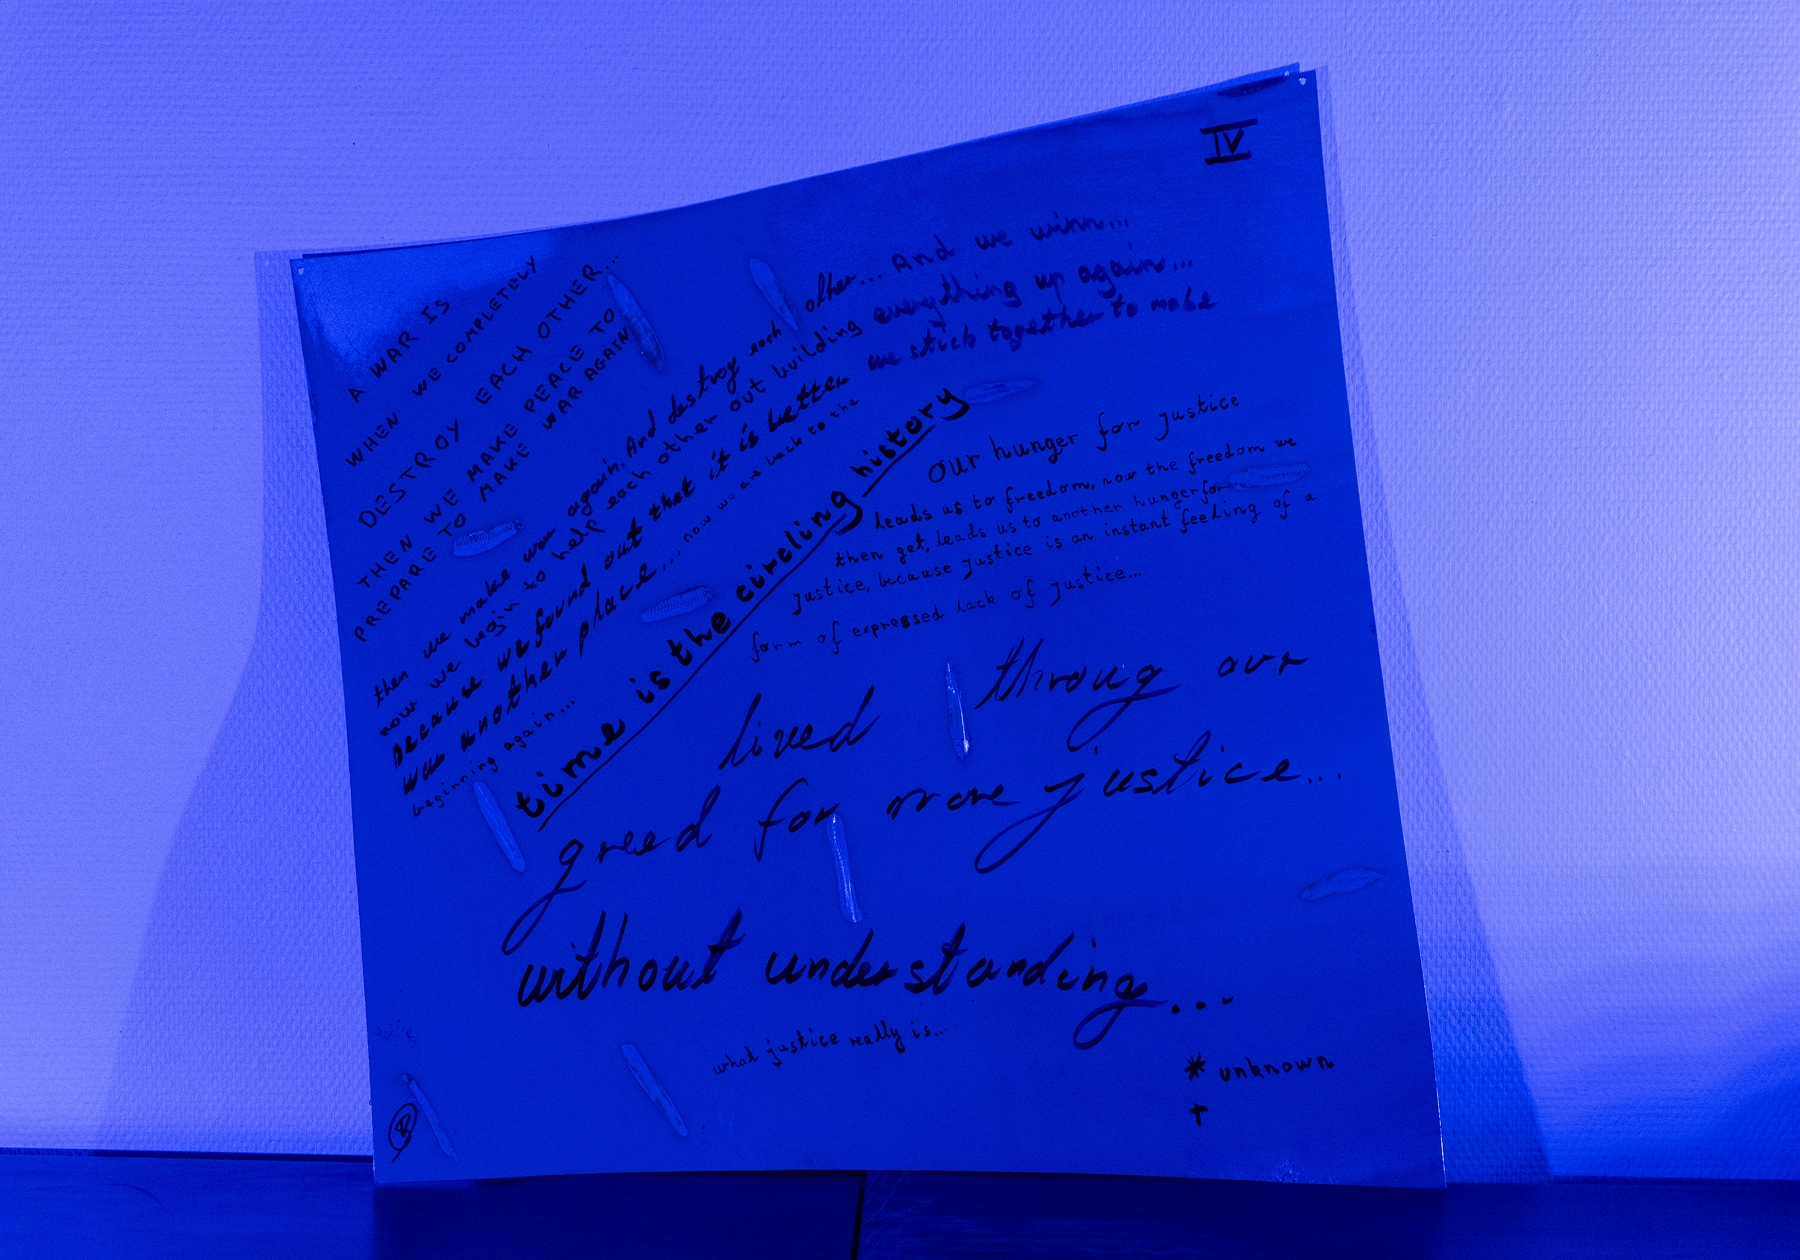 IV
A WAR IS
WHEN WE COMPLETELY
DESTROY EACH OTHER...
THEN WE MAKE PEACE TO
PREPARE TO MAKE WAR AGAIN
then we make war again. And destroy each other... And we winn...
now we begin to help each other out building everything up again...
because we found out that it is better we stick together to make
war another place... now we are back to the
beginning again...
time is the circling history
Our hunger for justice
leads us to freedom, now the freedom we
then get, leads us to another hunger for
justice, because justice is an instant feeling of a
form of expressed lack of justice...
lived throug our
greed for more justice...
without understanding...
what justice really is...
* unknown
†